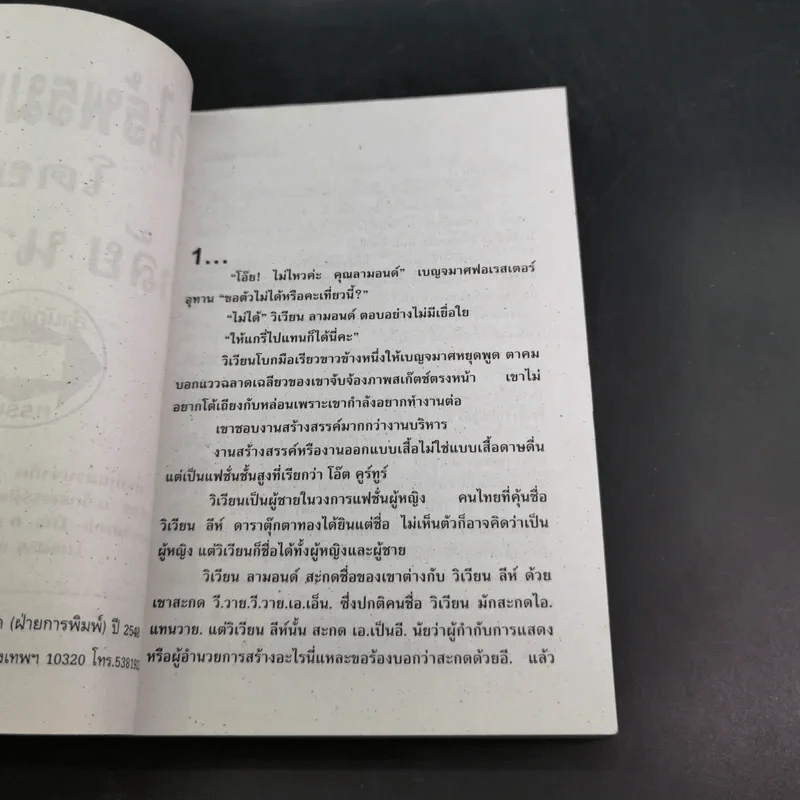 1...
“โอ๊ย! ไม่ไหวค่ะ คุณลามอนด์” เบญจมาศฟอเรสเตอร์
อุทาน “ขอตัวไม่ได้หรือคะเที่ยวนี้?”
“ไม่ได้” วิเวียน ลามอนด์ ตอบอย่างไม่มีเยื่อใย
“ให้แกรี่ไปแทนก็ได้นี่คะ”
วิเวียนโบกมือเรียวขาวข้างหนึ่งให้เบญจมาศหยุดพูด ตาคม
บอกแววฉลาดเฉลียวของเขาจับจ้องภาพสเก๊ตช์ตรงหน้า เขาไม่
อยากโต้เถียงกับหล่อนเพราะเขากำลังอยากทำงานต่อ
เขาชอบงานสร้างสรรค์มากกว่างานบริหาร
งานสร้างสรรค์หรืองานออกแบบเสื้อไม่ใช่แบบเสื้อดาษดื่น
แต่เป็นแฟชั่นชั้นสูงที่เรียกว่า โอ๊ต คูร์ทูร์
วิเวียนเป็นผู้ชายในวงการแฟชั่นผู้หญิง คนไทยที่คุ้นชื่อ
วิเวียน ลีห์ ดาราตุ๊กตาทองได้ยินแต่ชื่อ ไม่เห็นตัวก็อาจคิดว่าเป็น
ผู้หญิง แต่วิเวียนก็ชื่อได้ทั้งผู้หญิงและผู้ชาย
วิเวียน ลามอนด์ สะกดชื่อของเขาต่างกับ วิเวียน ลีห์ ด้วย
เขาสะกด วี.วาย.วี.วาย.เอ.เอ็น. ซึ่งปกติคนชื่อ วิเวียน มักสะกดไอ.
แทนวาย. แต่วิเวียน ลีห์นั้น สะกด เอ.เป็นอี. นัยว่าผู้กำกับการแสดง
หรือผู้อำนวยการสร้างอะไรนี่แหละขอร้องบอกว่าสะกดด้วยอี. แล้ว
(ฝ่ายการพิมพ์) ปี 2542
งเทพฯ 10320 โทร.538192